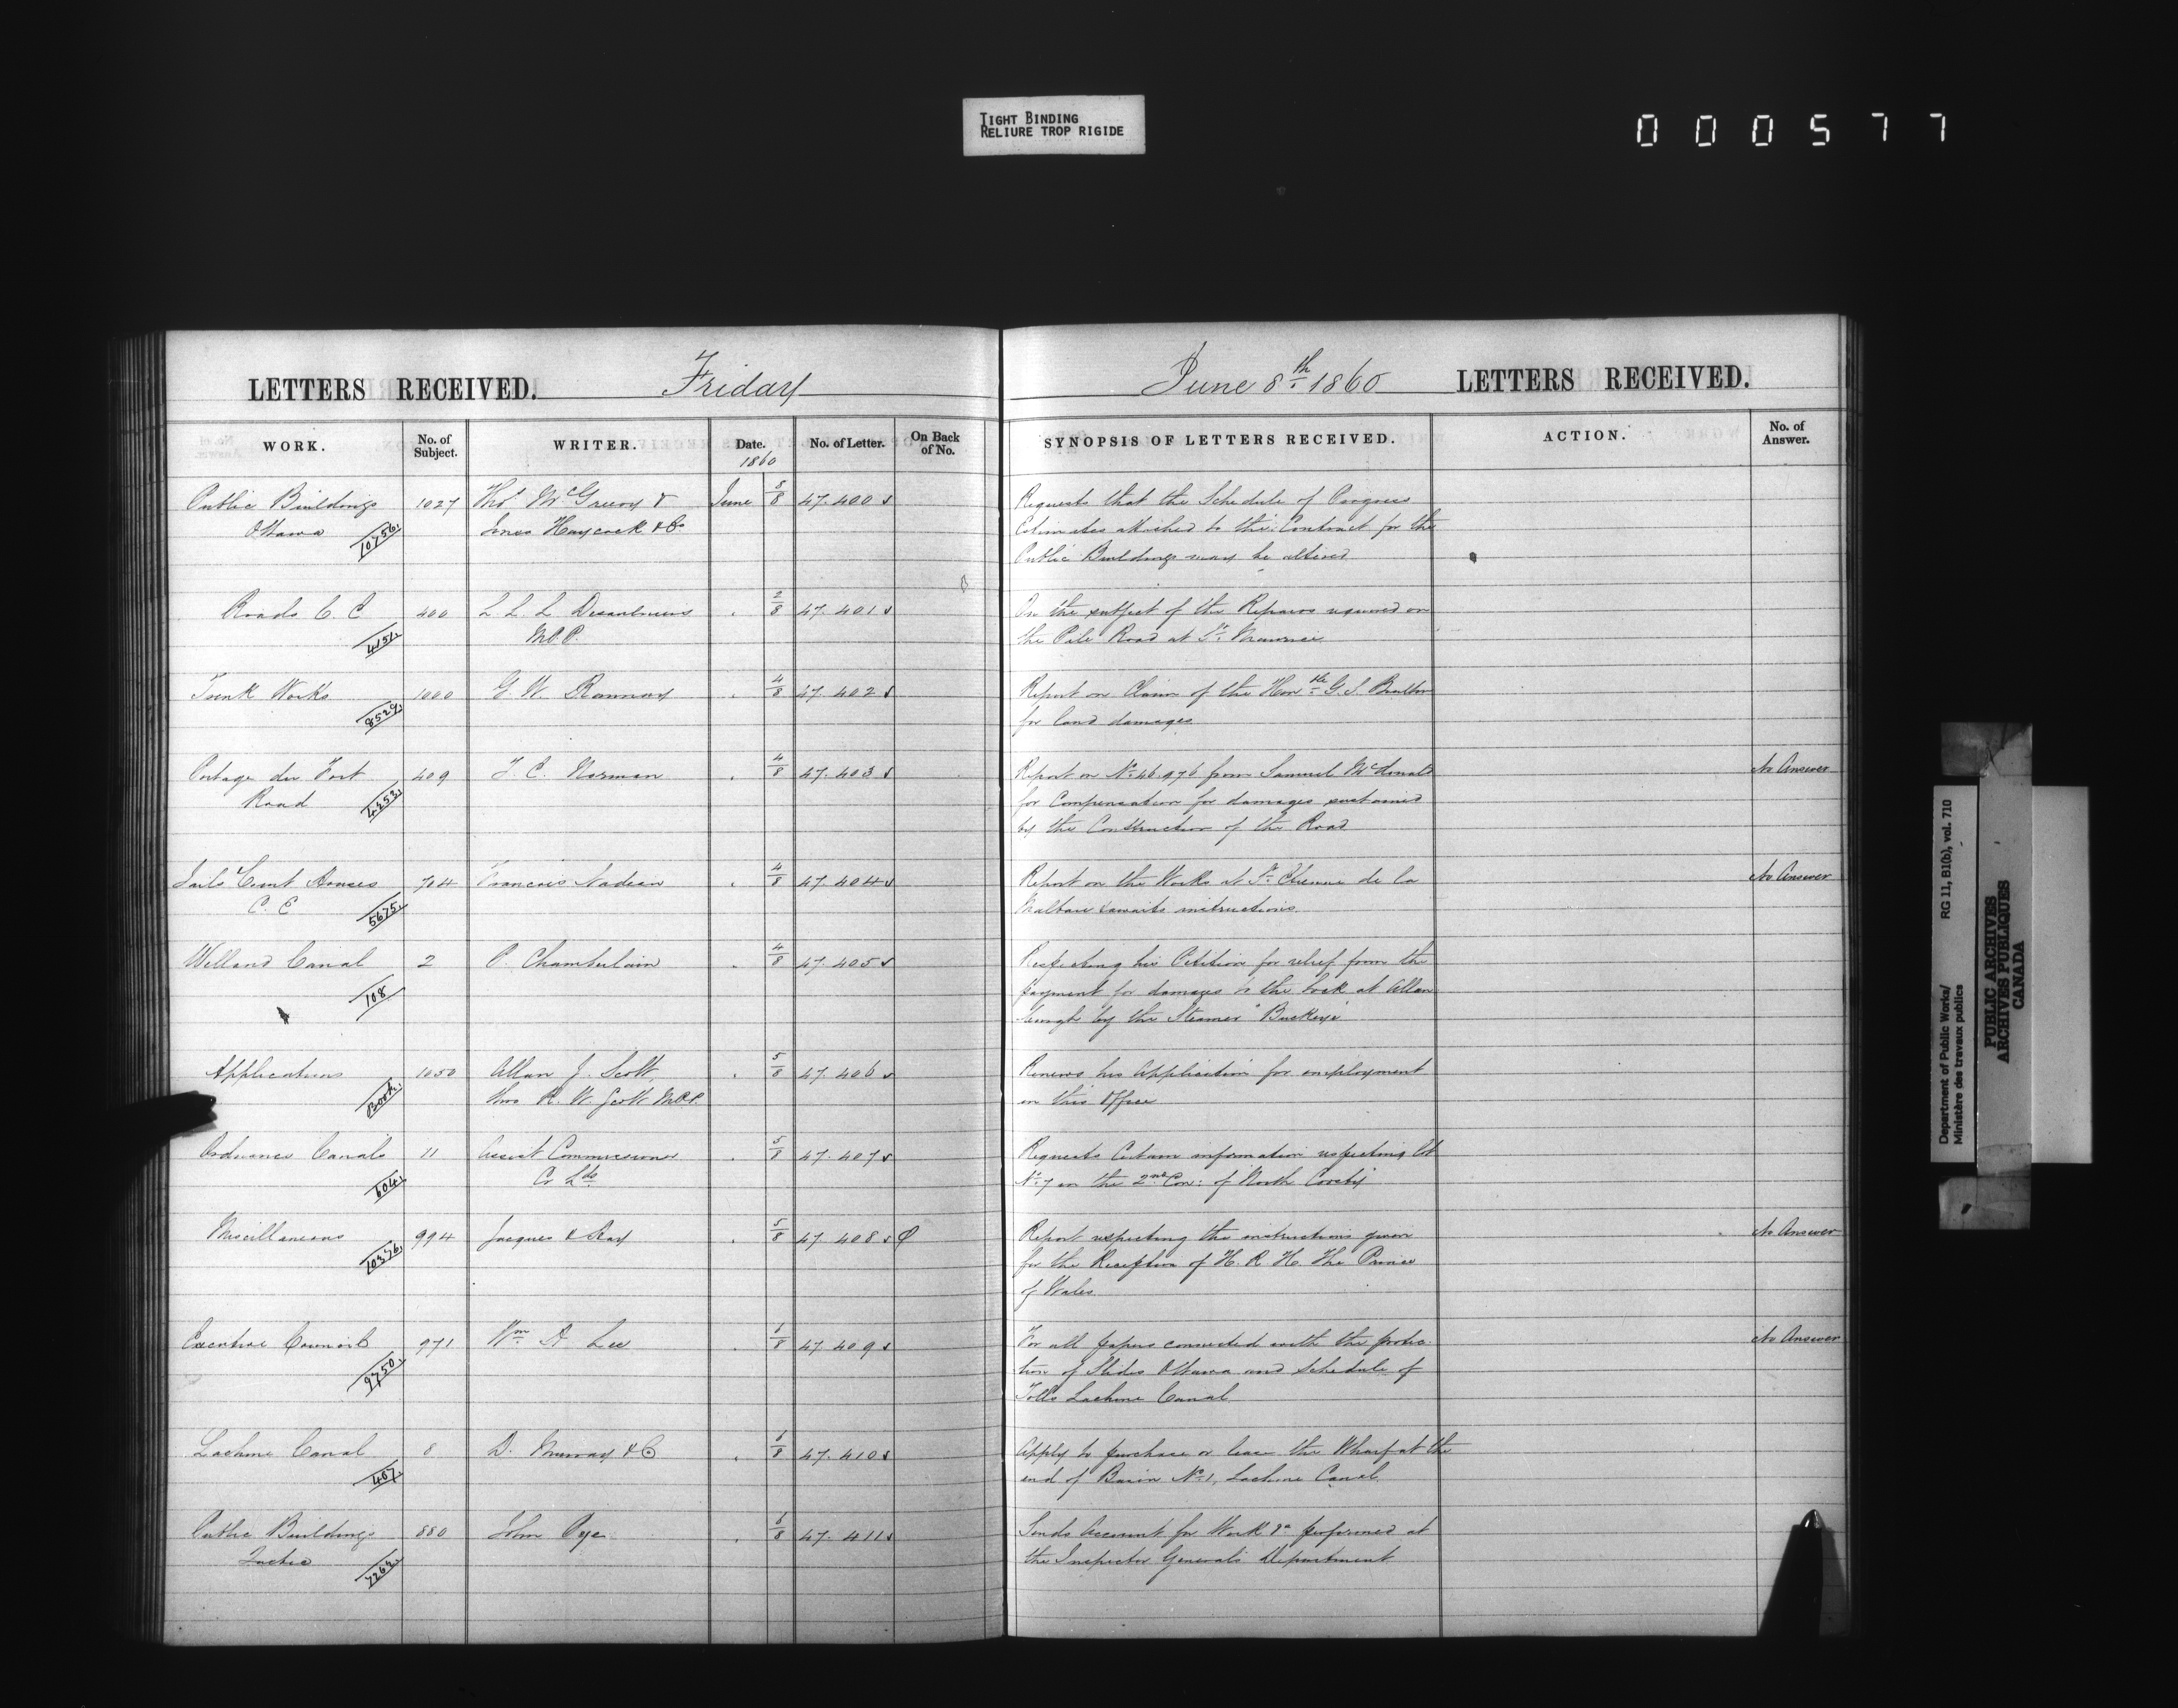 TIGHT BINDING
RELIURE TROP RIGIDE
000577
LETTERS RECEIVED. Friday
June 8th 1860 LETTERS RECEIVED.
WORK. No. of Subject. WRITER. Date. No. of Letter. On Back of No. SYNOPSIS OF LETTERS RECEIVED. ACTION. No. of Answer.
1860
Public Buildings 1027 Thos McGreevy & June 5/8 47.400 Requests that the Schedule of Progress
Ottawa 10756 Jones Haycock & Co. Estimates attached to their Contract for the
Public Buildings may be altered
Roads C E 400 L. L. L. Desaulniers " 2/8 47.401 On the subject of the Repairs required on
4151 M.P.P. the Pile Road at St. Maurice
Trunk Works 1000 G. W. Ranney " 4/8 47.402 Report on Claim of the Honble G. S. Boulton
8529 for land damages
Portage du Fort 409 F. C. Norman " 4/8 47.403 Report on No. 46.976 from Samuel McDonald No Answer
Road 4253 for Compensation for damages sustained
by the Construction of the Road
Jails Court Houses 704 Francois Nadeau " 4/8 47.404 Report on the Works at St. Etienne de la No Answer
C. E 5675 Malbaie & awaits instructions.
Welland Canal 2 P. Chamberlain " 4/8 47.405 Respecting his Petition for relief from the
108 payment for damages to the lock at Allan
burgh by the Steamer "Buckeye"
Applications 1050 Allan J. Scott, " 5/8 47.406 Renews his application for employment
Book R. W. Scott M.P.P. in this Office
Ordnance Canals 11 Assist Commissioner " 5/8 47.407 Requests Certain information respecting Lot
604 Cr Lds No. 7 in the 2nd Con: of North Crosby
Miscellaneous 994 Jacques & Hay " 5/8 47.408 Report respecting the instructions given No Answer
10376 for the Reception of H. R. H. The Prince
of Wales.
Executive Council 971 Wm. H. Lee " 6/8 47.409 For all papers connected with the No Answer
9750 tion of Slides Ottawa and Schedule of
Tolls Lachine Canal
Lachine Canal 8 D. Murray & Co " 6/8 47.410 Apply to purchase or lease the Wharf at the
407 end of Basin No. 1, Lachine Canal.
Public Buildings 880 John Pye " 6/8 47.411 Sends Account for Work &c performed at
Quebec 7263 the Inspector General's Department
Department of Public Works/
Ministère des travaux publics
RG 11, B1(b), vol. 710
PUBLIC ARCHIVES
ARCHIVES PUBLIQUES
CANADA